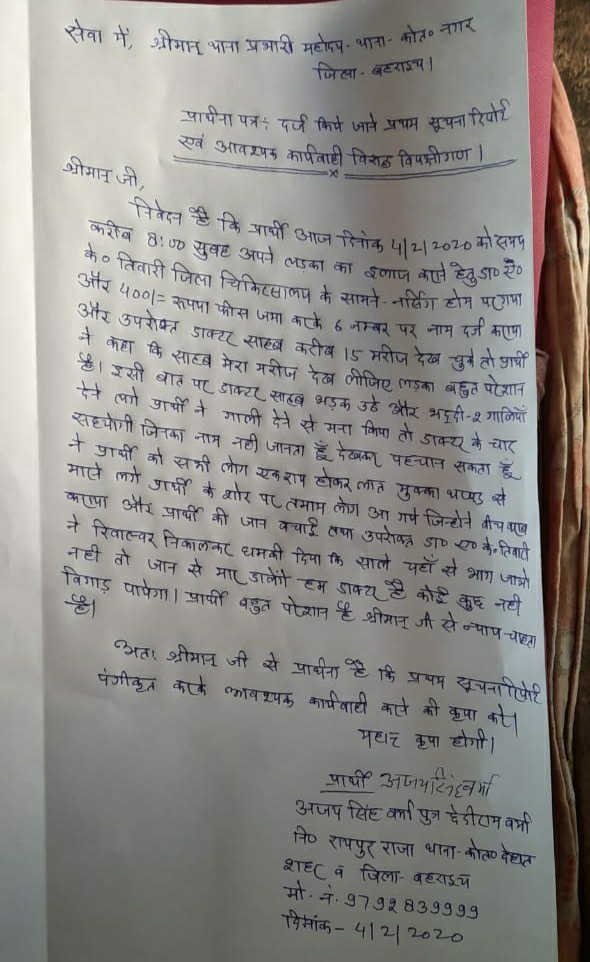 सेवा में, श्रीमान् थाना प्रभारी महोदय- थाना- कोत० नगर
जिला- बहराइच।
प्रार्थना पत्र: दर्ज किये जाने प्रथम सूचना रिपोर्ट
एवं आवश्यक कार्यवाही विरूद्ध विपक्षीगण।
श्रीमान् जी,
निवेदन है कि प्रार्थी आज दिनांक 4/2/2020 को समय
करीब 8:00 सुबह अपने लड़का का इलाज कराने हेतु डा० ऐ०
के० तिवारी जिला चिकित्सालय के सामने- नर्सिंग होम पर गया
और 400/= रूपया फीस जमा करके 6 नम्बर पर नाम दर्ज कराया
और उपरोक्त डाक्टर साहब करीब 15 मरीज देख चुके तो प्रार्थी
ने कहा कि साहब मेरा मरीज देख लीजिए लड़का बहुत परेशान
है। इसी बात पर डाक्टर साहब भड़क उठे और भद्दी-२ गालियाँ
देने लगे प्रार्थी ने गाली देने से मना किया तो डाक्टर के चार
सहयोगी जिनका नाम नही जानता हूँ देखकर पहचान सकता हूँ
ने प्रार्थी को सभी लोग एक राय होकर लात मुक्का थप्पड़ से
मारने लगे प्रार्थी के शोर पर तमाम लोग आ गये जिन्होने बीच बचाव
कराया और प्रार्थी की जान बचाई तथा उपरोक्त डा० ए० के० तिवारी
ने रिवाल्वर निकालकर धमकी दिया कि साले यहाँ से भाग जाओ
नही तो जान से मार डालेंगे हम डाक्टर है कोई कुछ नही
बिगाड़ पायेगा। प्रार्थी बहुत परेशान है श्रीमान् जी से न्याय चाहता
है।
अतः श्रीमान् जी से प्रार्थना है कि प्रथम सूचना रिपोर्ट
पंजीकृत करके आवश्यक कार्यवाही करने की कृपा करे।
महान् कृपा होगी।
प्रार्थी अजय सिंह वर्मा
अजय सिंह वर्मा पुत्र छेदीराम वर्मा
नि० रायपुर राजा थाना- कोत० देहात
शहर व जिला- बहराइच
मो. नं. 9792839999
दिनांक- 4/2/2020